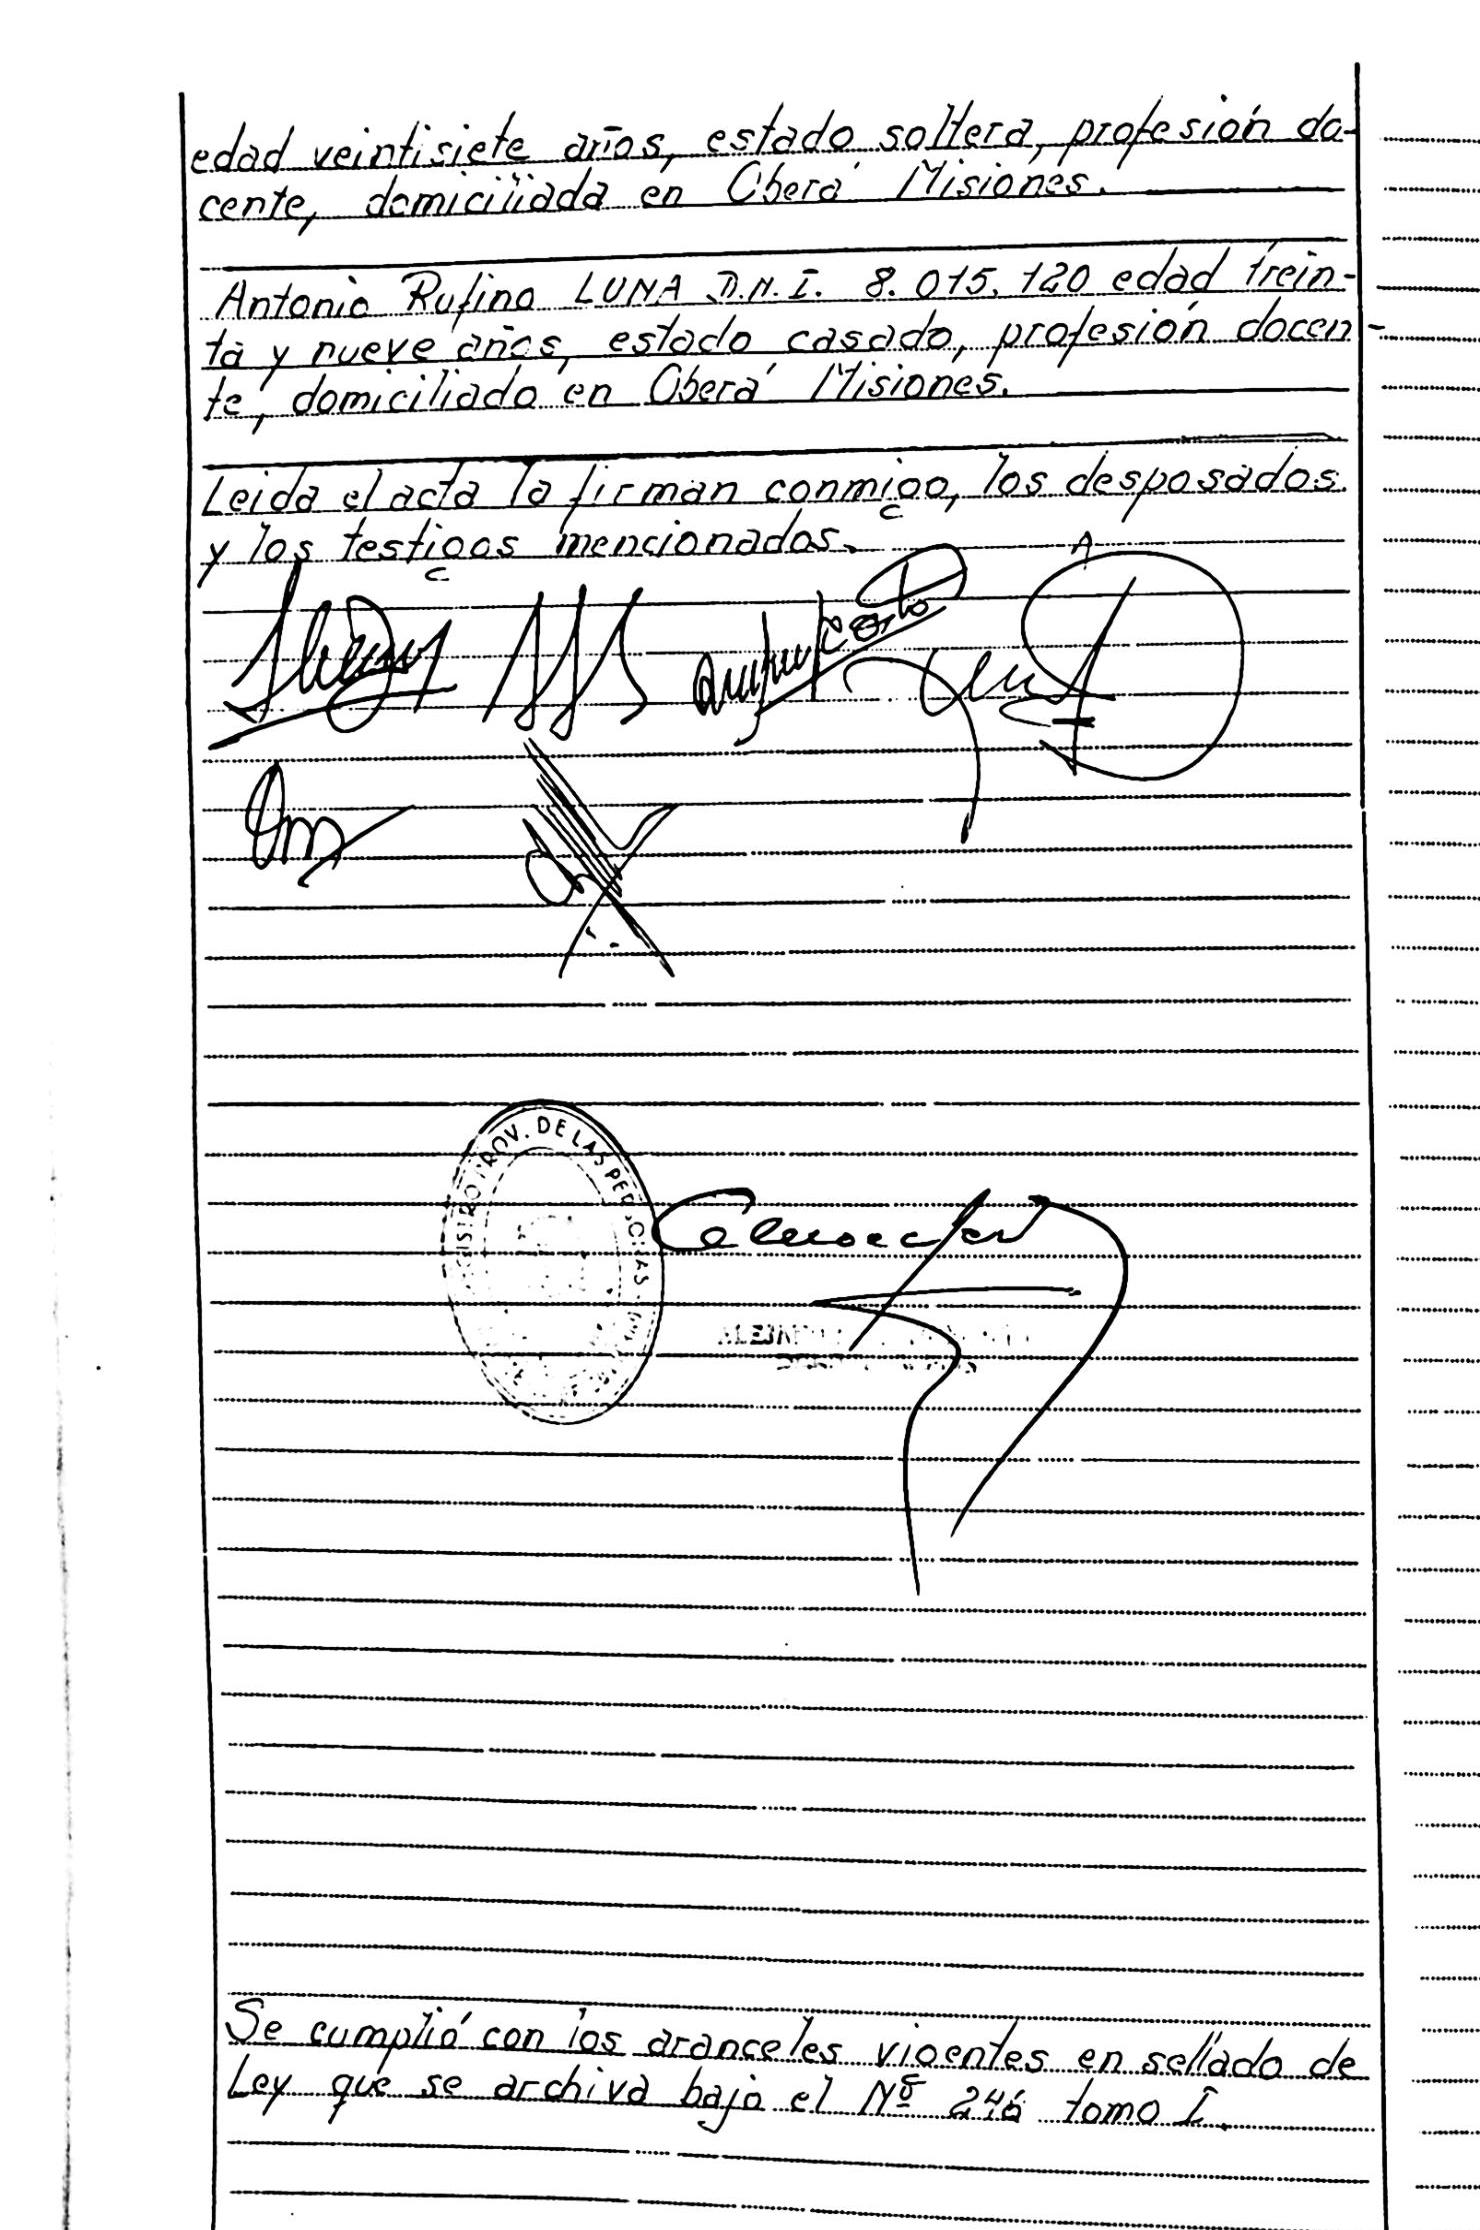 edad veintisiete años, estado soltera, profesión do-
cente, domiciliada en Oberá Misiones.
Antonio Rufino LUNA D.N.I. 8.015.120 edad trein-
ta y nueve años, estado casado, profesión docen-
te, domiciliado en Oberá Misiones.
Leida el acta la firman conmigo, los desposados
y los testigos mencionados.
DE LAS PERSONAS
Se cumplió con los aranceles vigentes en sellado de
Ley que se archiva bajo el Nº 246 tomo I.